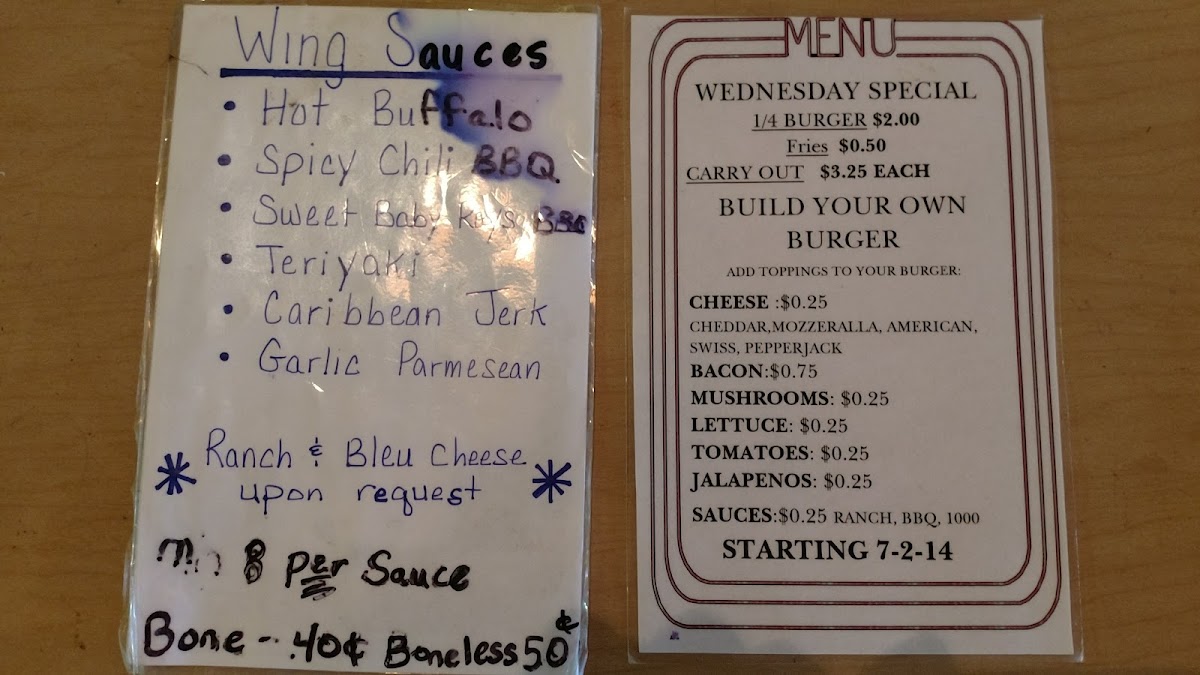 Wing Sauces
• Hot Buffalo
• Spicy Chili BBQ
• Sweet Baby Rays BBQ
• Teriyaki
• Caribbean Jerk
• Garlic Parmesean
* Ranch & Bleu Cheese *
upon request
Min 8 per Sauce
Bone -- .40¢ Boneless 50¢
MENU
WEDNESDAY SPECIAL
1/4 BURGER $2.00
Fries $0.50
CARRY OUT $3.25 EACH
BUILD YOUR OWN
BURGER
ADD TOPPINGS TO YOUR BURGER:
CHEESE :$0.25
CHEDDAR,MOZZERALLA, AMERICAN,
SWISS, PEPPERJACK
BACON:$0.75
MUSHROOMS: $0.25
LETTUCE: $0.25
TOMATOES: $0.25
JALAPENOS: $0.25
SAUCES:$0.25 RANCH, BBQ, 1000
STARTING 7-2-14